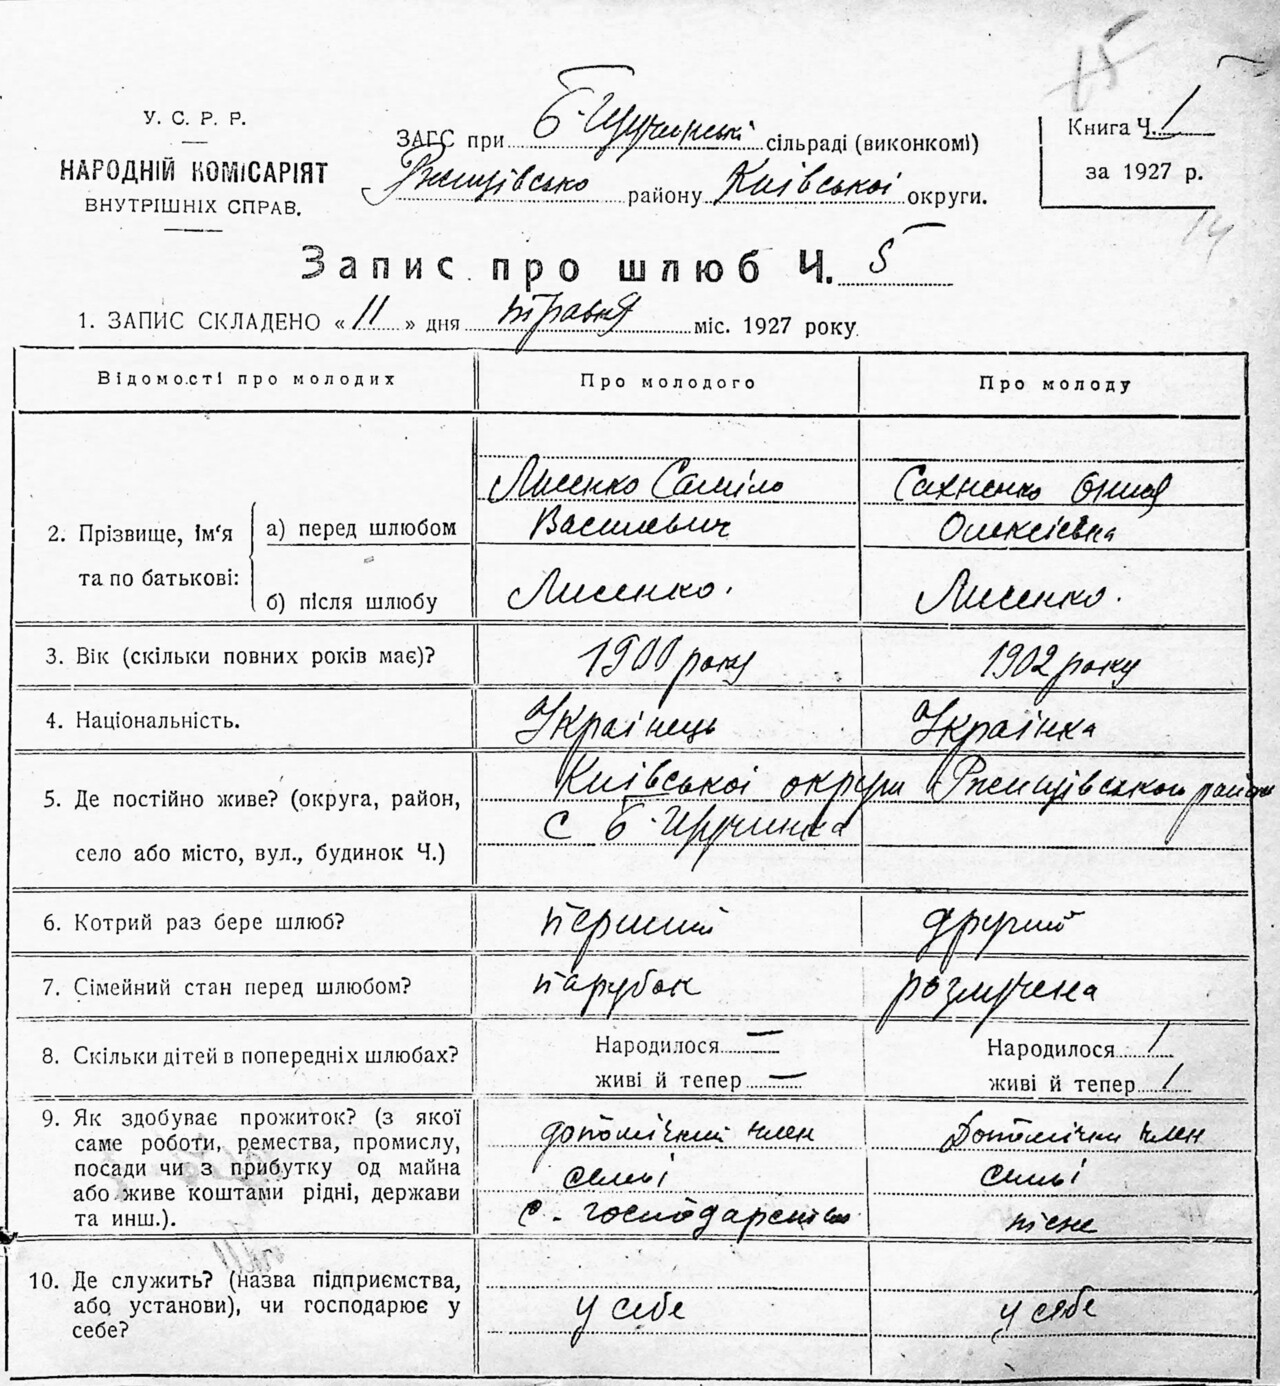 15
У. С. Р. Р.
НАРОДНІЙ КОМІСАРІЯТ
ВНУТРІШНІХ СПРАВ.
ЗАГС при Б-Щучинські сільраді (виконкомі)
Ржищівсько району Київської округи.
Книга Ч. 1
за 1927 р.
14
Запис про шлюб Ч. 5
1. ЗАПИС СКЛАДЕНО « 11 » дня травня міс. 1927 року
Відомості про молодих Про молодого Про молоду
2. Прізвище, ім‘я та по батькові:
а) перед шлюбом
Лисенко Саміло
Василевич
Сахненко
Олексієвна
б) після шлюбу Лисенко. Лисенко.
3. Вік (скільки повних років має)? 1900 року 1902 року
4. Національність. Українець Українка
5. Де постійно живе? (округа, район,
село або місто, вул., будинок Ч.)
Київської округи Ржищівського району
с Б-Щучинка
6. Котрий раз бере шлюб? перший другий
7. Сімейний стан перед шлюбом? парубок розлучена
8. Скільки дітей в попередніх шлюбах? Народилося — Народилося 1
живі й тепер — живі й тепер 1
9. Як здобуває прожиток? (з якої
саме роботи, ремества, промислу,
посади чи з прибутку од майна
або живе коштами рідні, держави
та инш.).
допомічний член
семьі
с. господарство
Допомічни член
семьі
10. Де служить? (назва підприємства,
або установи), чи господарює у
себе?
у себе у себе